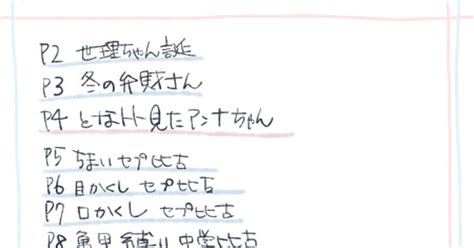 P2 世理ちゃん誕
P3 冬の弁財さん
P4 となトト見たアンナちゃん
P5 うまい セプ比古
P6 目かくし セプ比古
P7 口かくし セプ比古
P8 亀甲縛り 中学比古